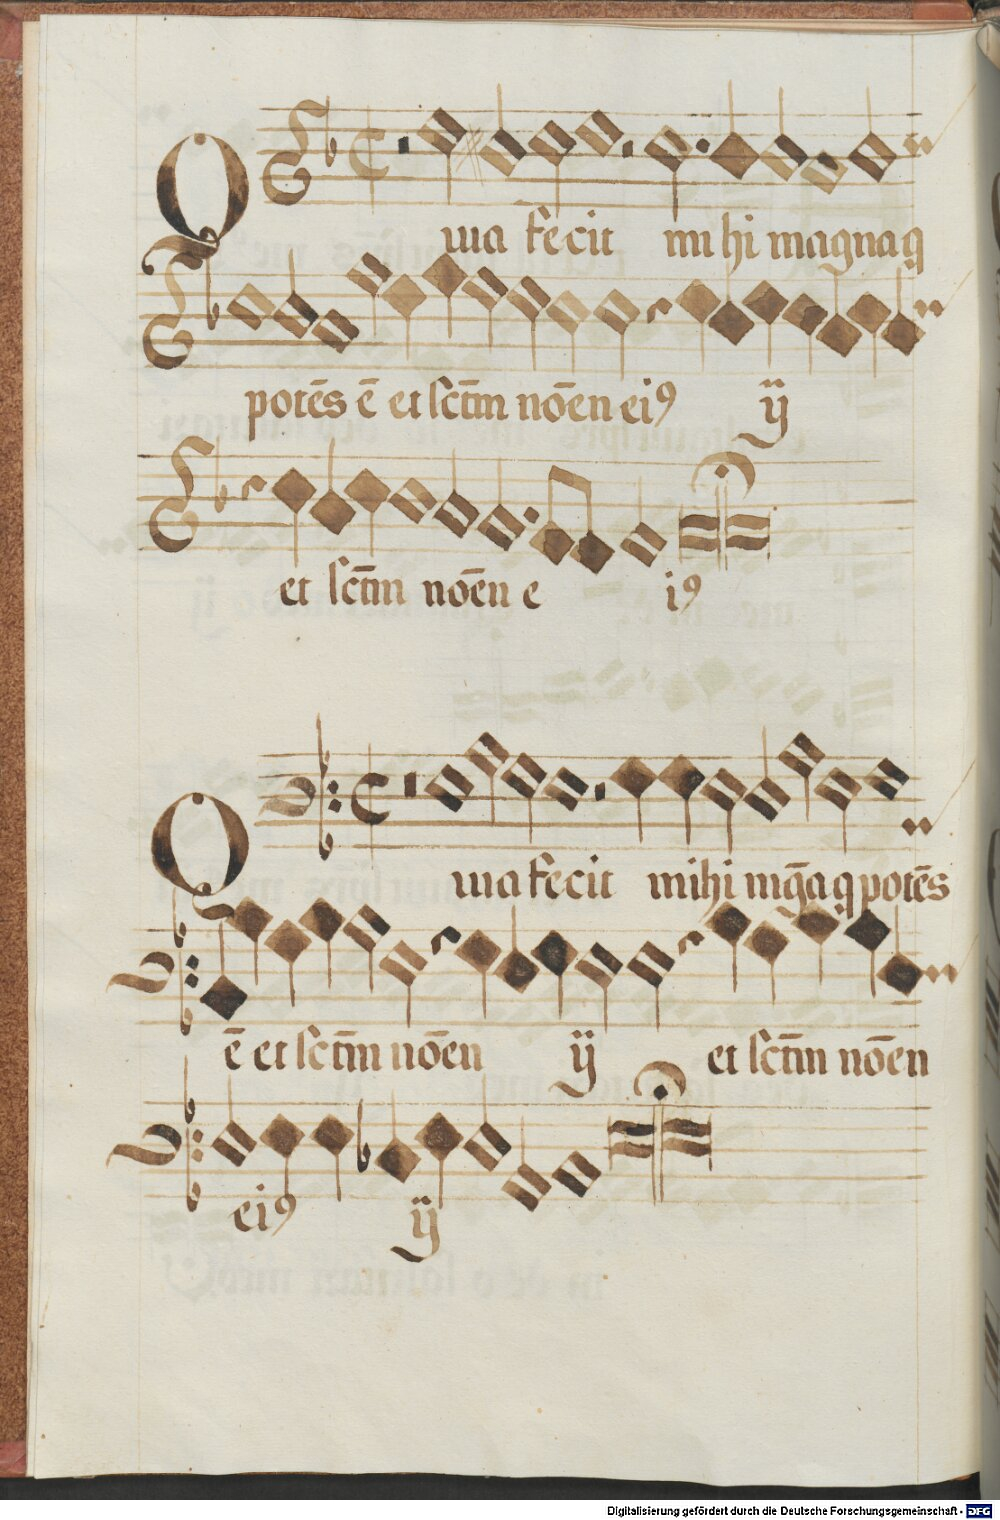 Quia fecit mihi magna q
potēs ē et sctm̄ nōen ei9 ij
et sctm̄ nōen e i9
Quia fecit mihi mḡa q potēs
ē et sctm̄ nōen ij et sctm̄ nōen
ei9 ij
Digitalisierung gefördert durch die Deutsche Forschungsgemeinschaft - DFG